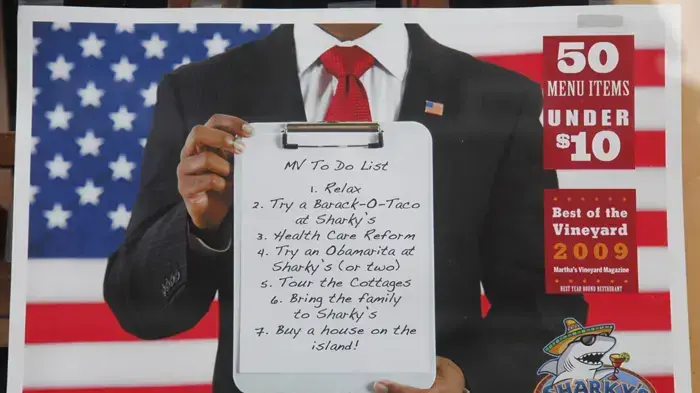 MV To Do List
1. Relax
2. Try a Barack-O-Taco
at Sharky's
3. Health Care Reform
4. Try an Obamarita at
Sharky's (or two)
5. Tour the Cottages
6. Bring the family
to Sharky's
7. Buy a house on the
island!
50
MENU ITEMS
UNDER
$10
Best of the
Vineyard
2009
Martha's Vineyard Magazine
BEST YEAR ROUND RESTAURANT
SHARKY'S